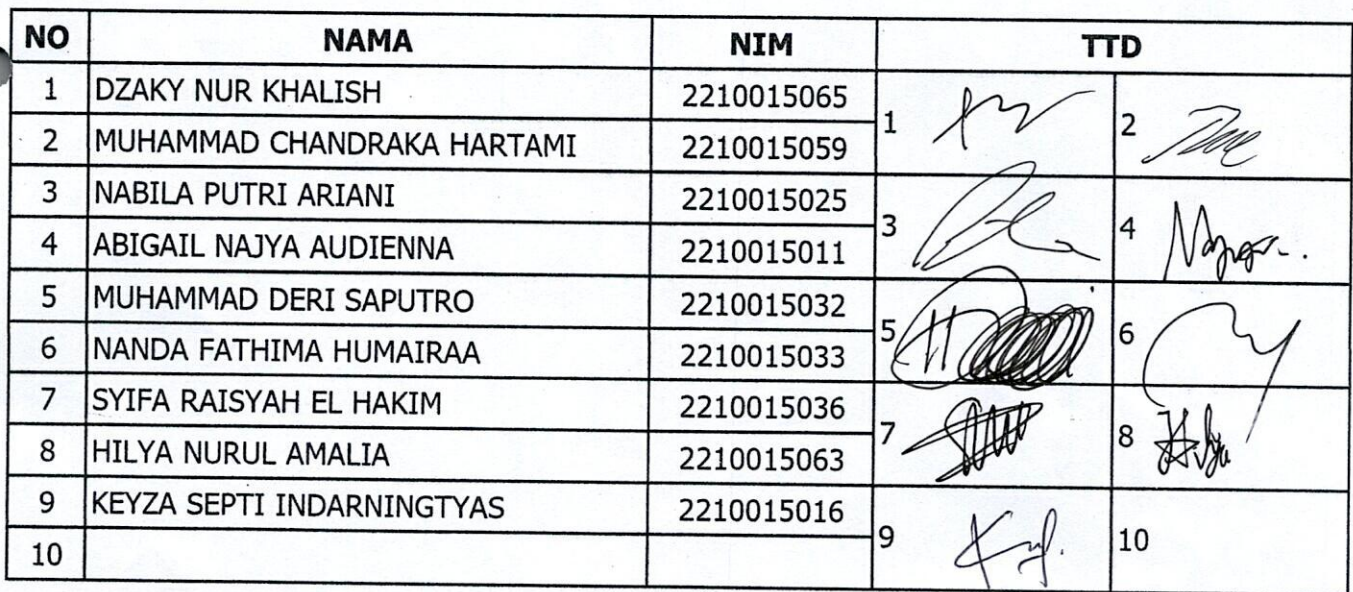 NO NAMA NIM TTD
1 DZAKY NUR KHALISH 2210015065
1 2
2 MUHAMMAD CHANDRAKA HARTAMI 2210015059
3 NABILA PUTRI ARIANI 2210015025
3 4
4 ABIGAIL NAJYA AUDIENNA 2210015011
5 MUHAMMAD DERI SAPUTRO 2210015032
5 6
6 NANDA FATHIMA HUMAIRAA 2210015033
7 SYIFA RAISYAH EL HAKIM 2210015036
7 8
8 HILYA NURUL AMALIA 2210015063
9 KEYZA SEPTI INDARNINGTYAS 2210015016
9 10
10